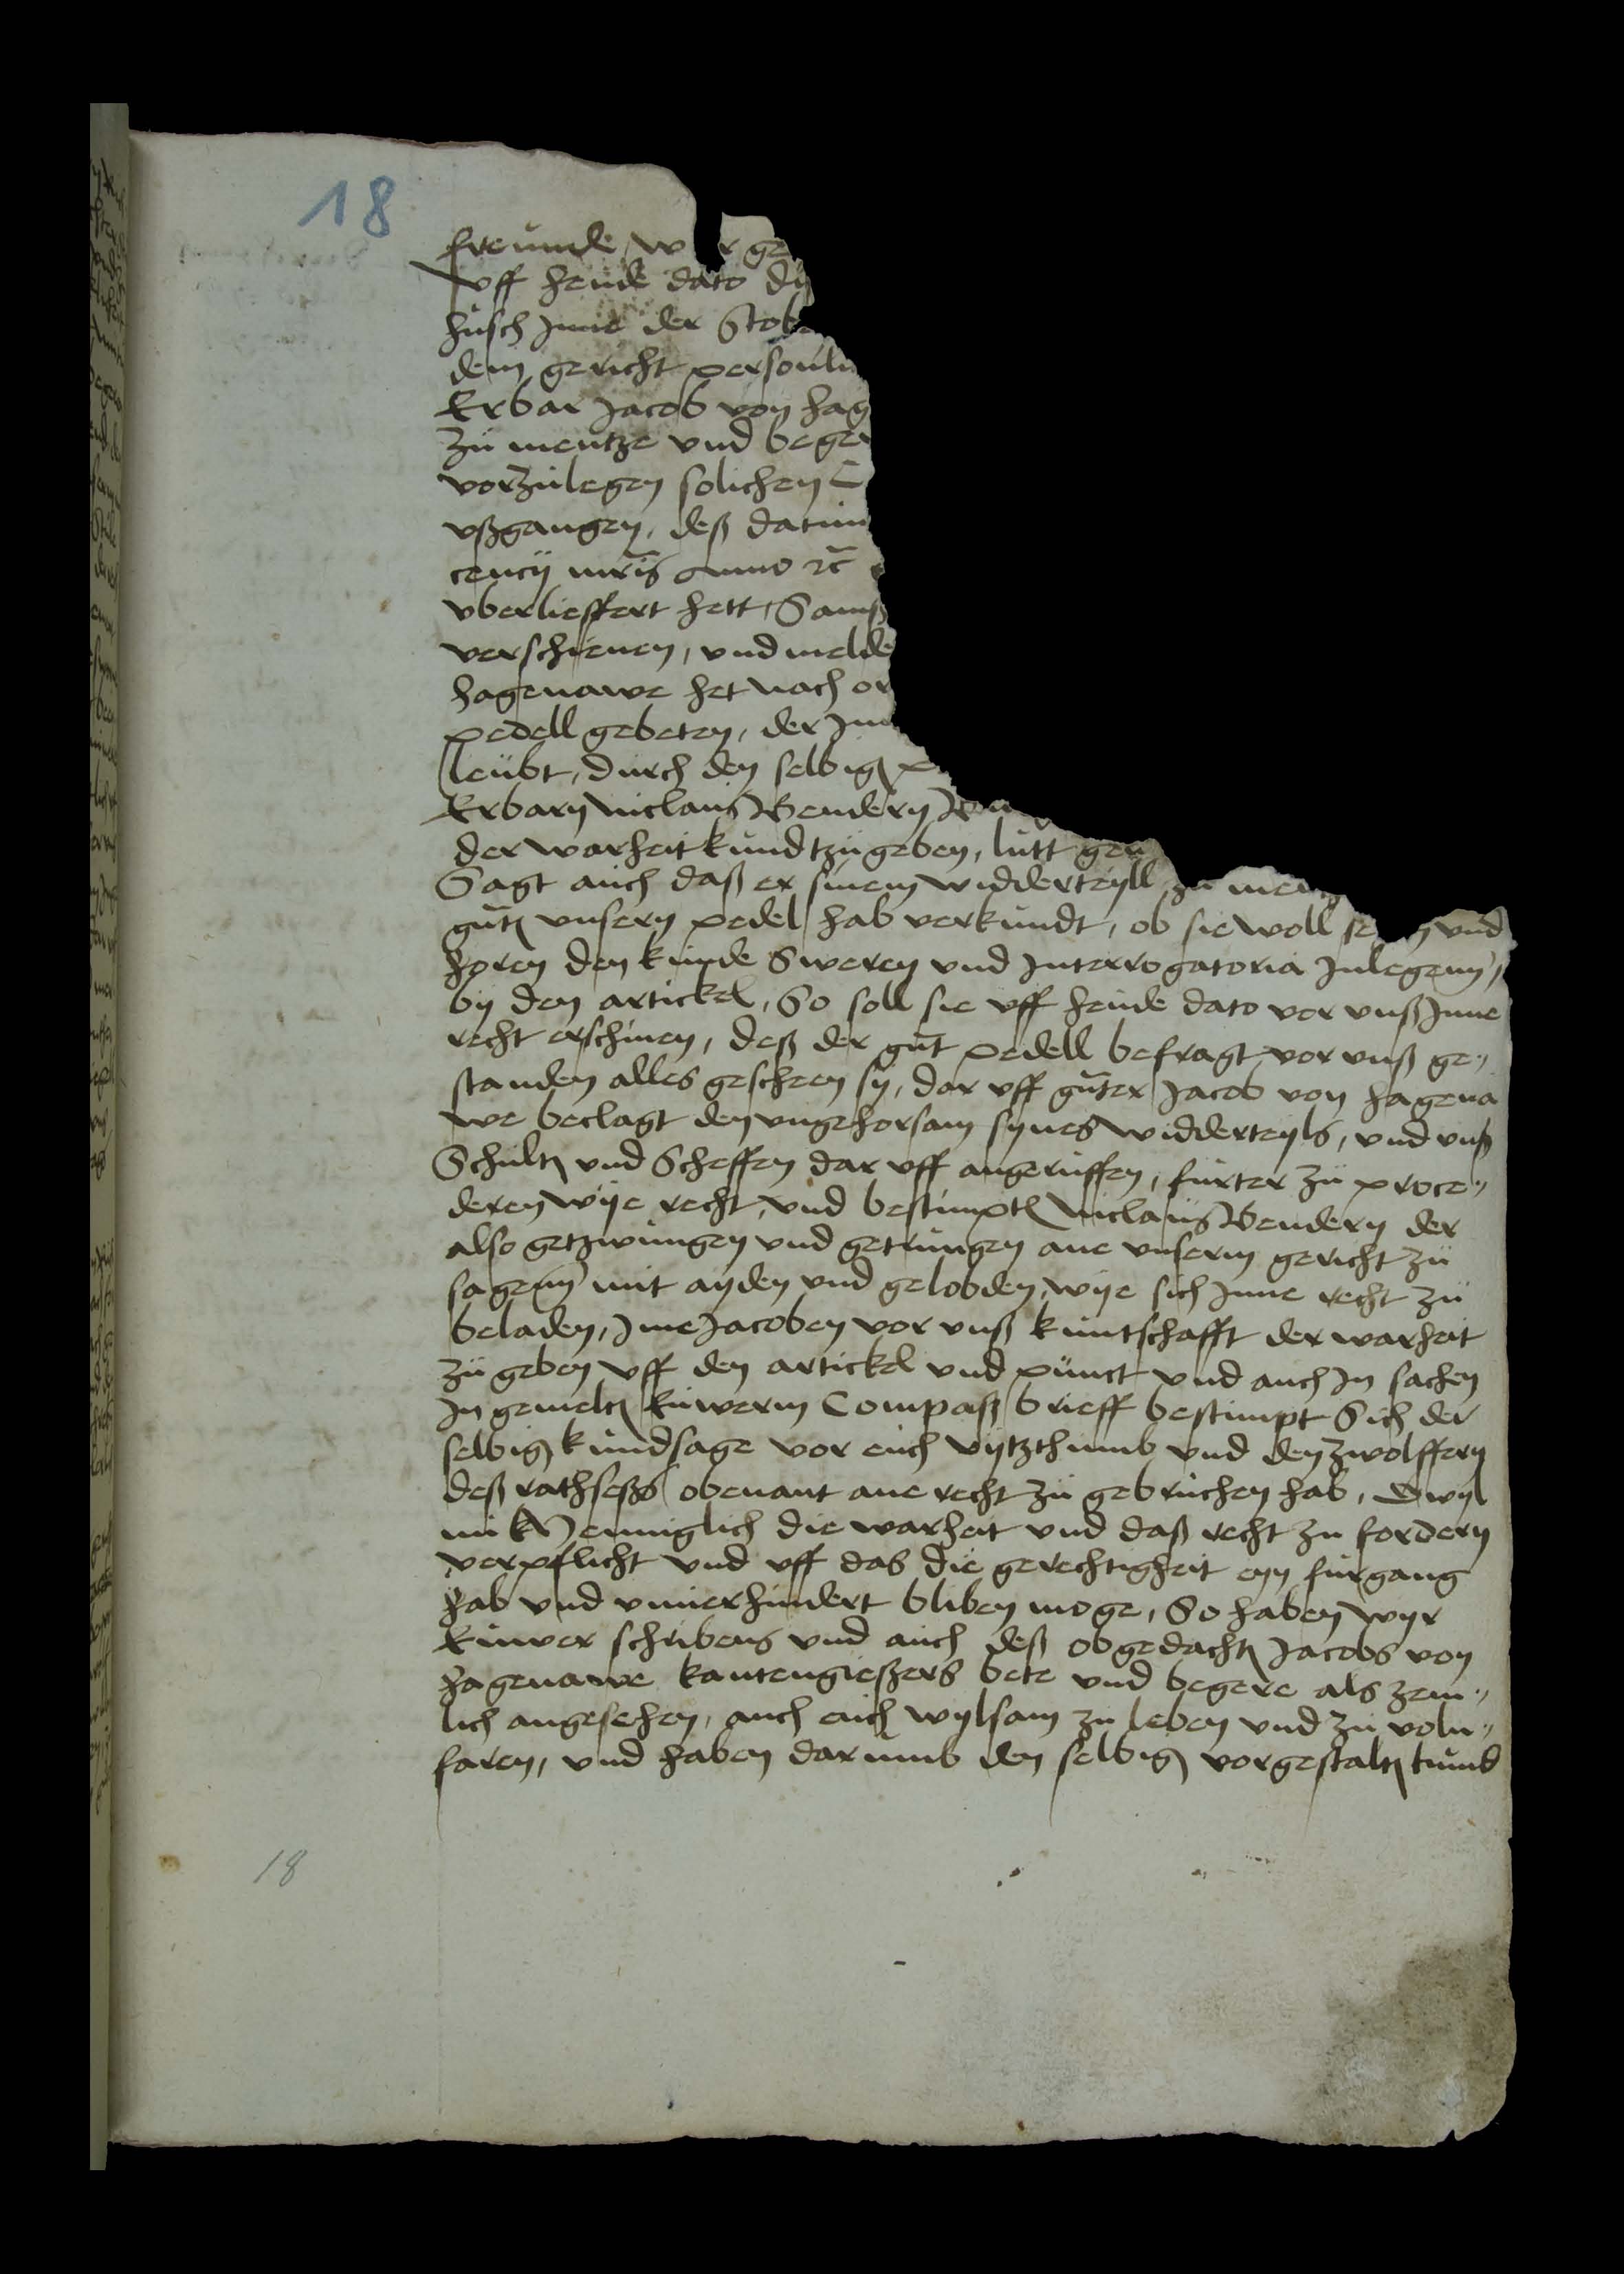 18
freunde w r ge
vff heude dato dy
husch Jnne der Stob
dem gericht persoul
Erbar Jacob von hag
zu mentze vnd beger
vorzulegen solichen C
vßgangen, deß datum
cencij mrs anno rc
vberlieffert hett, Samß
verschienen, vnd melde
hagenawe het nach or
pedell gebeten, der Jm
leubt, durch den selbig p
Erbarn niclaus Bendern
der warheit kundtzugeben, lutt gen
Sagt auch daß er sinem widderteyll zu men
gut vnsern pedel hab verkundt, ob sie woll se n vnd
horen den kunde Sweren vnd Interrogatoria Inlegenn,
by den artickel, So soll sie vff heude dato vor vnß Jnne
recht erschinen, deß der gut pedell befragt vor vnß ge"
standen alles gescheen sy, dar vff guter Jacob von hagena
we beclagt den vngehorsam synes widderteyls, vnd vnß
Schult vnd Scheffen dar vff angeruffen, furter zu proce"
deren wije recht, vnd bestimpt niclaus Bendern der
also getzwungen vnd getrungen ane vnserm gericht zu
sagenn mit ayden vnd gelobden, wije sich Jnne recht zu
beladen, Jme Jacoben vor vnß kuntschafft der warheit
zu geben vff den artickel vnd punct vnd auch In sachen
In gemelt Euwerm Compaß brieff bestimpt Sich der
selbig kundsage vor euch vytzthumb vnd den zwolffern
deß rathseßs obenant ane recht zu gebruchen hab, Dwyl
nu Menniglich die warheit vnd daß recht zu fordern
verpflicht vnd vff das die gerechtigheit eyn furgang
hab vnd vnuerhindert bliben moge, So haben wyr
Euwer schribens vnd auch deß obgedacht Jacobs von
hagenawe kantengießers bete vnd begere als zem"
lich angesehen, auch euch wylsam zu leben vnd zu voln"
faren, vnd haben darumb den selbig vorgestalt kund
18